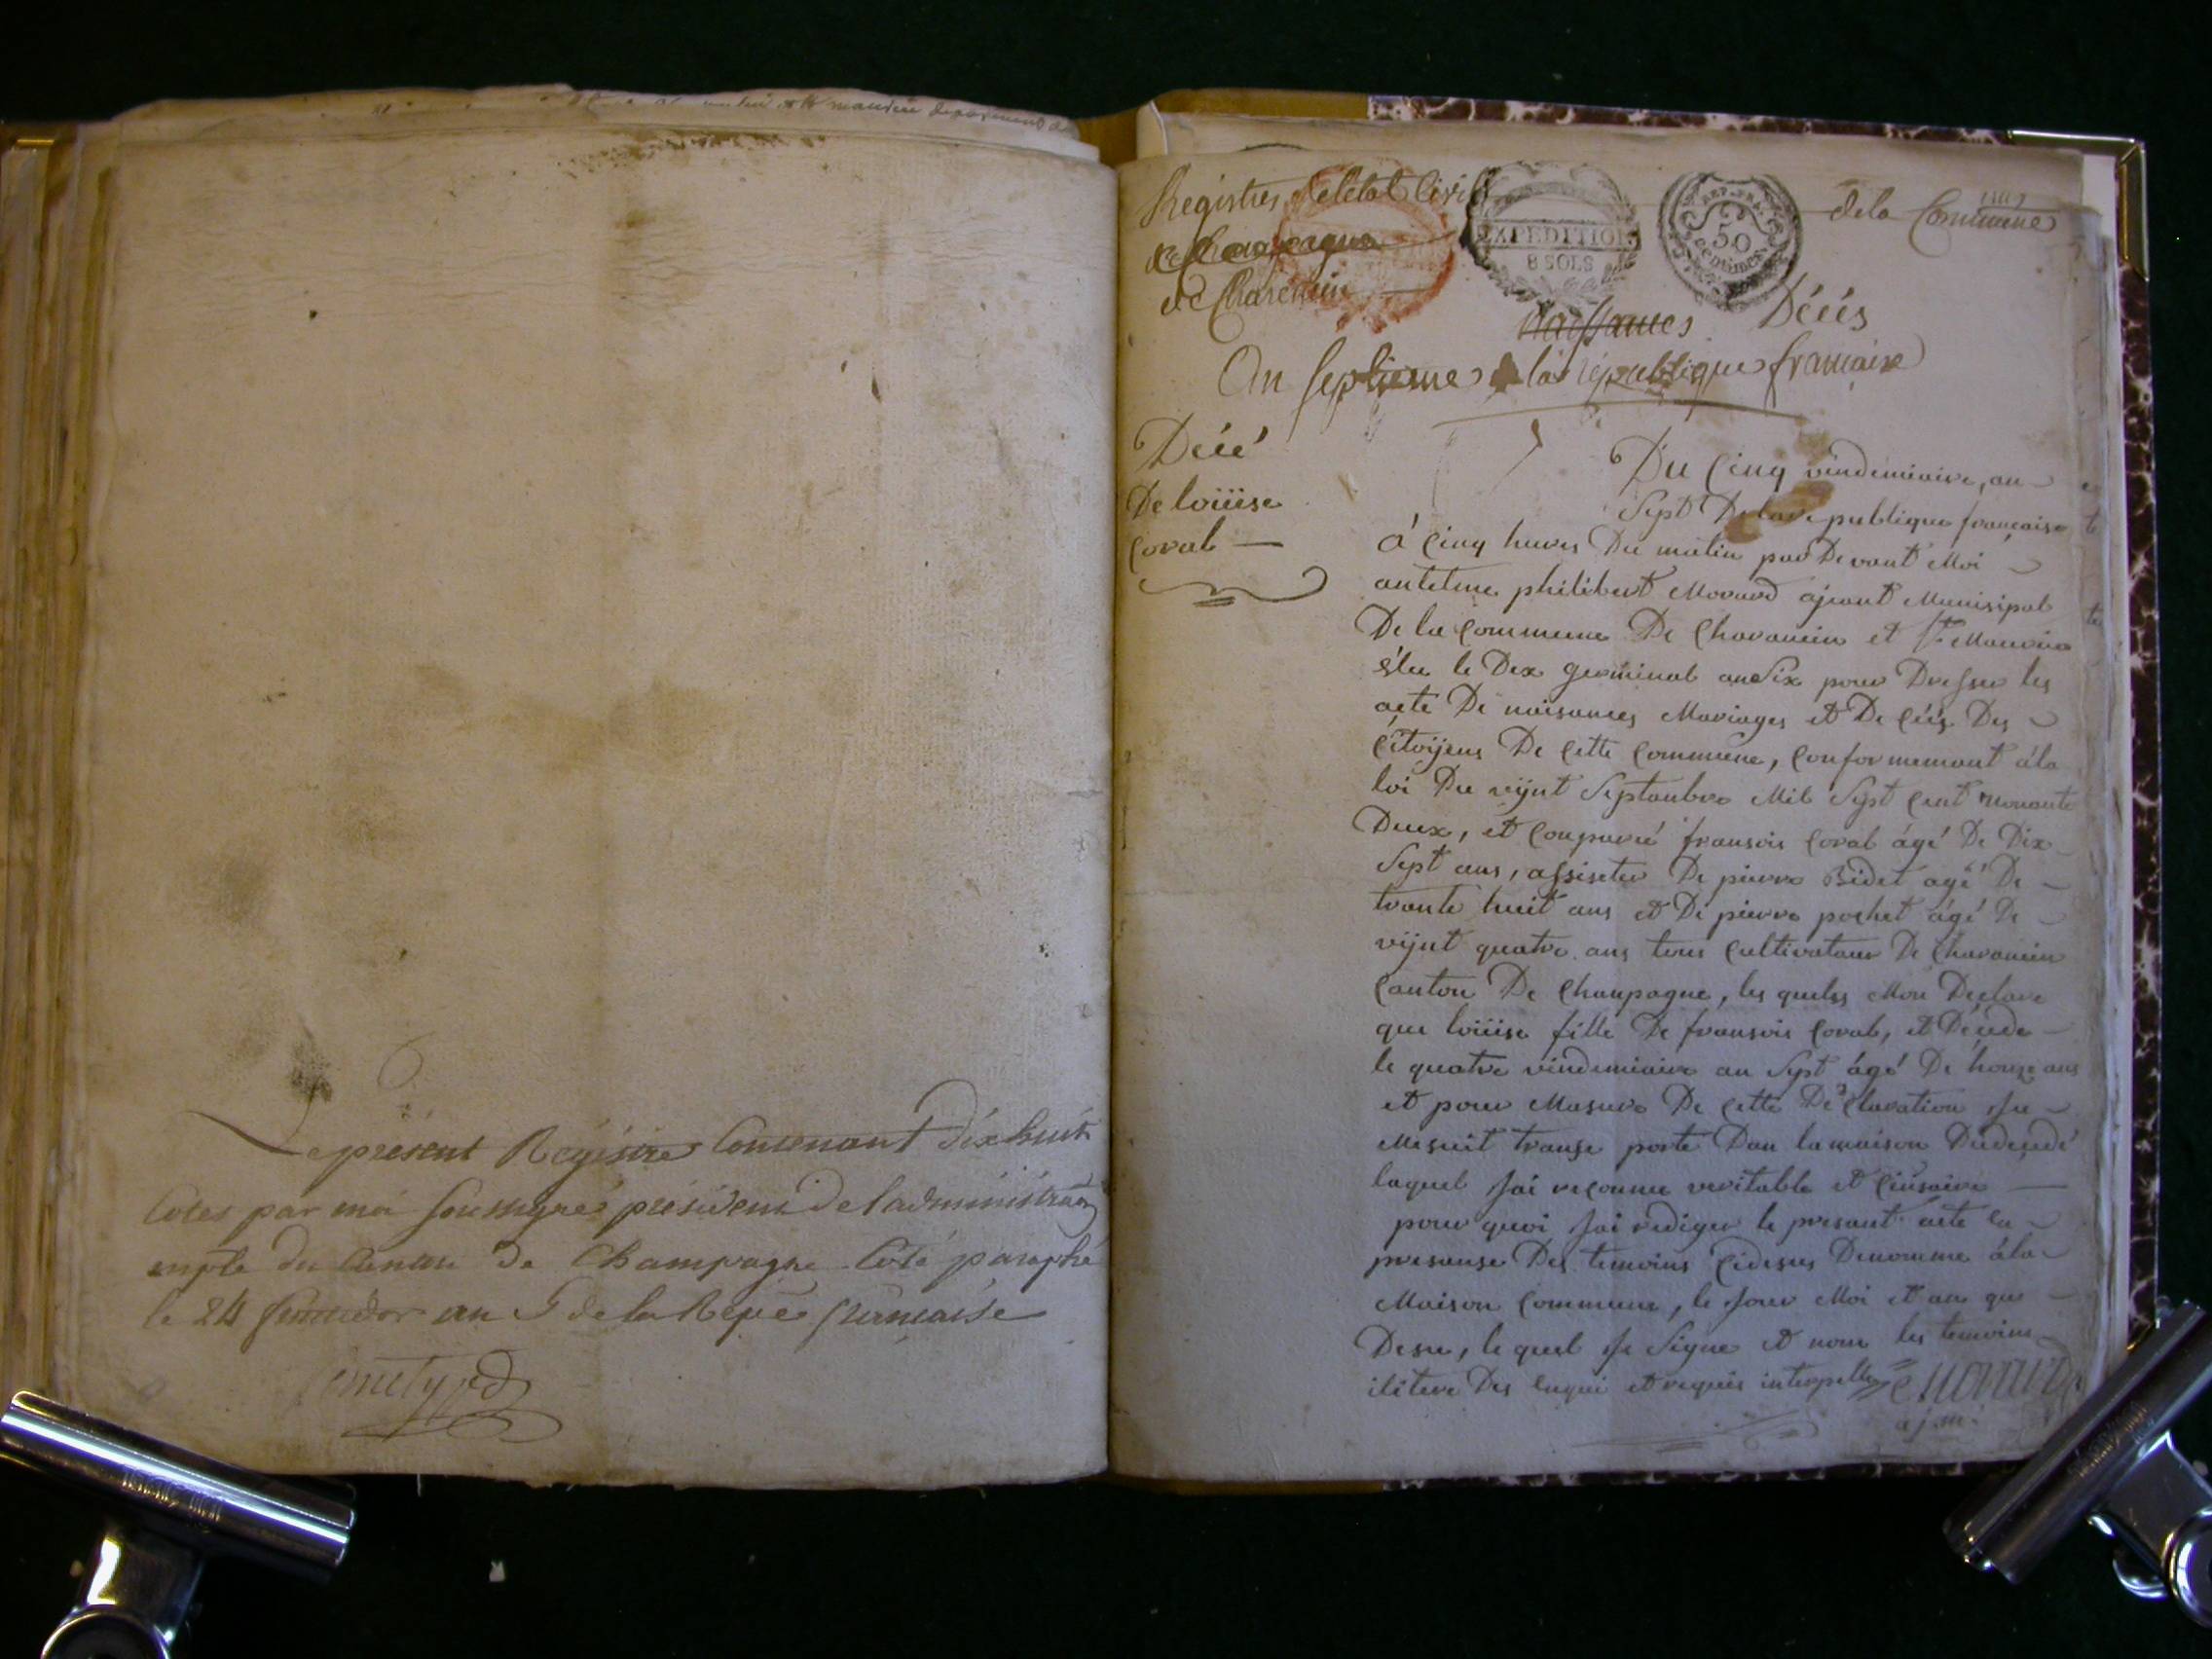 Le présent Registre Contenant dix huit
Cotes par moi soussigné président de l'administraon
mple du Canton de Champagne Coté paraphé
le 24 an de la Repe française
Registres de letat Civil de la Commune
de Champagne
de Charencin
EXPEDITION
8 SOLS
REP. FRA.
50
CENTIMES
naissances Décés
An septieme de la république francaise
Décé
De loüise
Coral
Du Cinq vindemiaire, an
Sept De la republique francaise
à Cinq heures Du matin par Devant Moi
antelme philibert Morard ajeant Munisipal
De la Commune De Charancin et St Maurice
élu le Dix germinal an Six pour Dresser les
acte De naisances Mariages et De Céés Des
Citoÿens De Cette Commune, Conformemant à la
loi Du vijnt Septanbre Mil Sept Cent nonante
Deux, et Conparue fransois Coral âgé De Dix
Sept ans, assisetee De pierre Bidet agé De
trante huit ans et De pierre pochet âgé De
vijnt quatre ans tous Cultivataur De Charancin
Canton De Chanpagne, les quelss Mon Declare
que loüise fille De fransois Coral, et Décede
le quatre vindemiaire an Sept âgé De honze ans
et pour Masure De Cette Declaration Je
Mesuit transe porte Dan la maison Dudecedé
laquel Jai reconnue veritable et
pour quoi Jai rediger le presant acte en
presanse Des temoins Cidesus Denomme à la
Maison Commune, le Jour Moi et an que
Desu, le quel Je Signe et nom les temoins
ilitere Des enqui et requis interpelle Morard
aj. m.